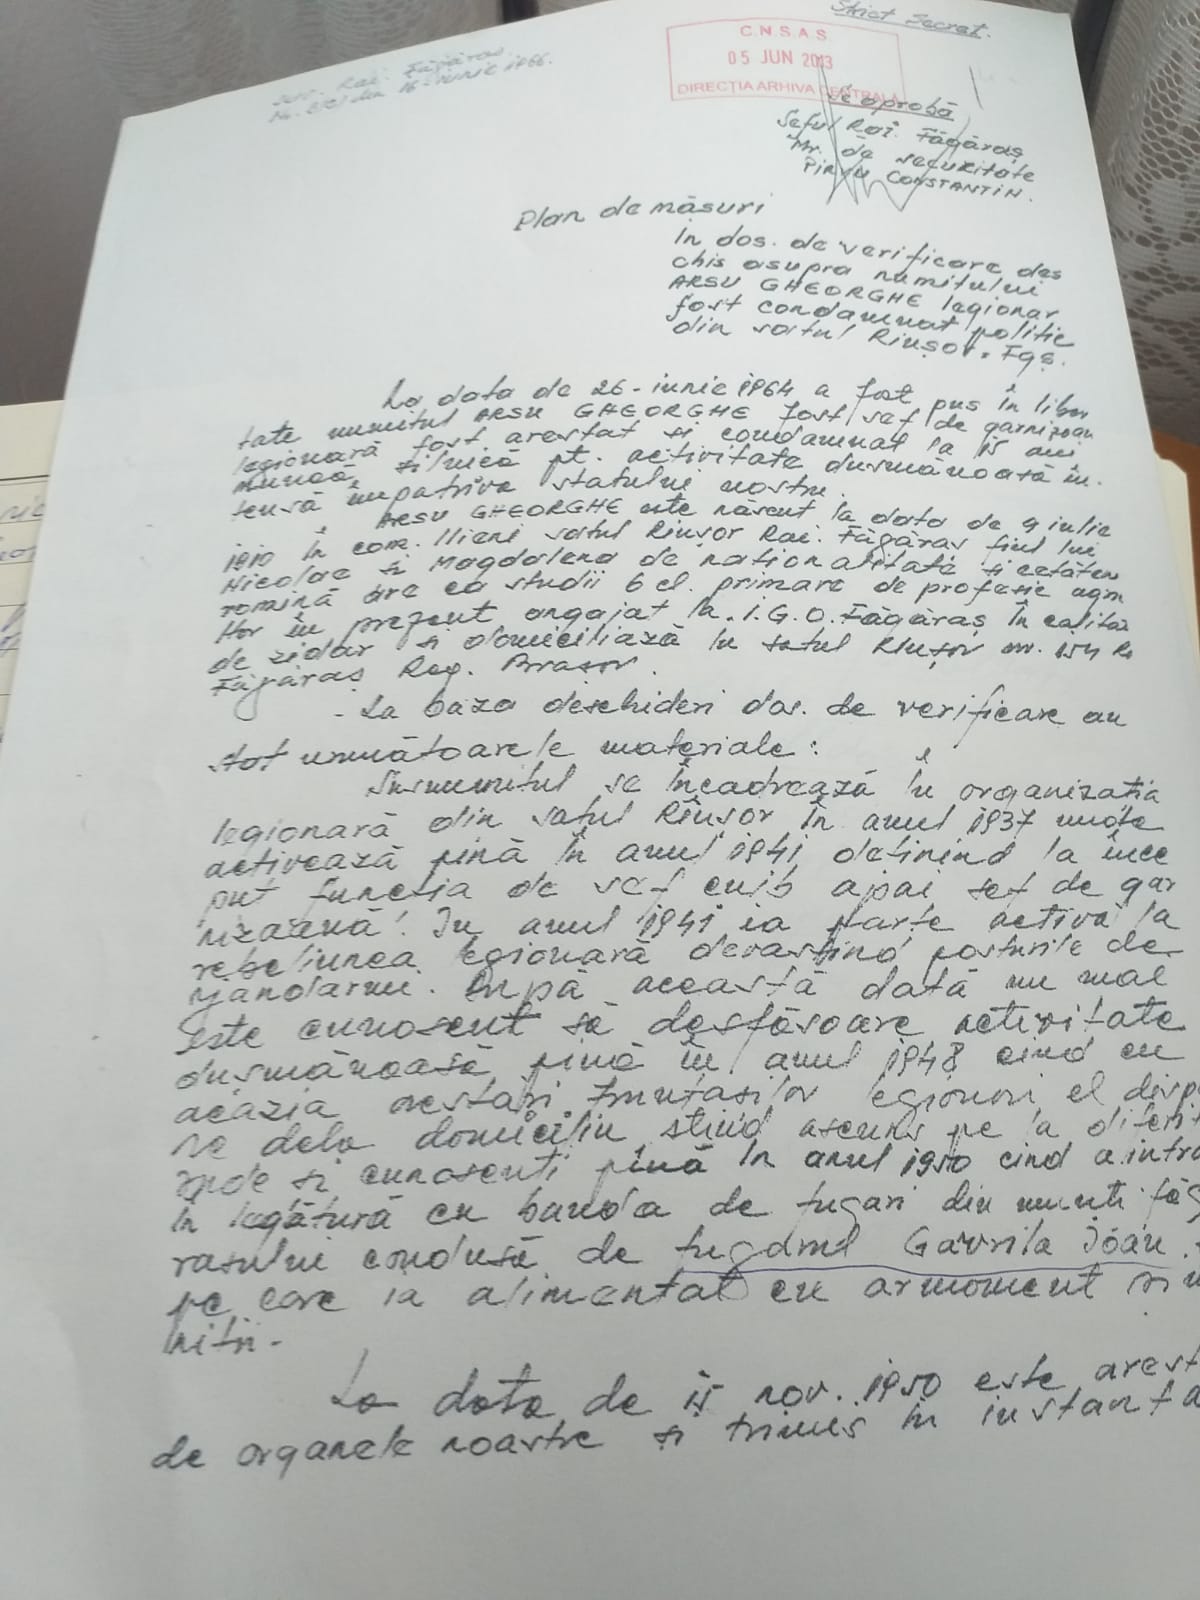 Strict Secret.
C.N.S.A.S.
05 JUN 2013
DIRECȚIA ARHIVA CENTRALĂ
Rai. Făgăraș
din 16 - iunie 1966.
Se aprobă
Șeful Rai. Făgăraș
Mr. de securitate
PÎRVU CONSTANTIN.
Plan de măsuri
În dos. de verificare des
chis asupra numitului
ARSU GHEORGHE legionar
fost condamnat politic
din satul Rîușor. Fgș.
La data de 26 - iunie 1964 a fost pus în liber
tate numitul ARSU GHEORGHE fost șef de garnizoan
legionară fost arestat și condamnat la 15 ani
muncă silnică pt. activitate dușmănoasă în.
tensă împotriva statului nostru.
ARSU GHEORGHE este născut la data de 9 iulie
1910 în com. Ilieni satul Rîușor Rai. Făgăraș fiul lui
Nicolae și Magdalena de naționalitate și cetățen
romînă are ca studii 6 cl. primare de profesie agri
ltor în prezent angajat la I.G.O. Făgăraș în calita
de zidar și domiciliază în satul Rîușor nr. 154 R
Făgăraș Reg. Brașov.
- La baza deschideri dos. de verificare au
stat următoarele materiale:
Susnumitul se încadrează în organizația
legionară din satul Rîușor în anul 1937 unde
activează pînă în anul 1941, deținînd la înce
put funcția de șef cuib, apoi șef de gar
nizoană! În anul 1941 ia parte activă la
rebeliunea legionară devastînd posturile de
jandarmi. După această dată nu mai
este cunoscut să desfășoare activitate
dușmănoasă pînă în anul 1948 cînd cu
ocazia arestări legionori el disp
re dela domiciliu stînd ascuns pe la diferi
rude și cunoscuti pînă în anul 1950 cînd a intra
în legătură cu banda de fugari din munți făg
rasului condusă de fugarul Gavrila Ioan.
pe care ia alimentat cu armament și m
niții -
La data de 15 nov. 1950 este arest
de organele noastre și trimis în instanța